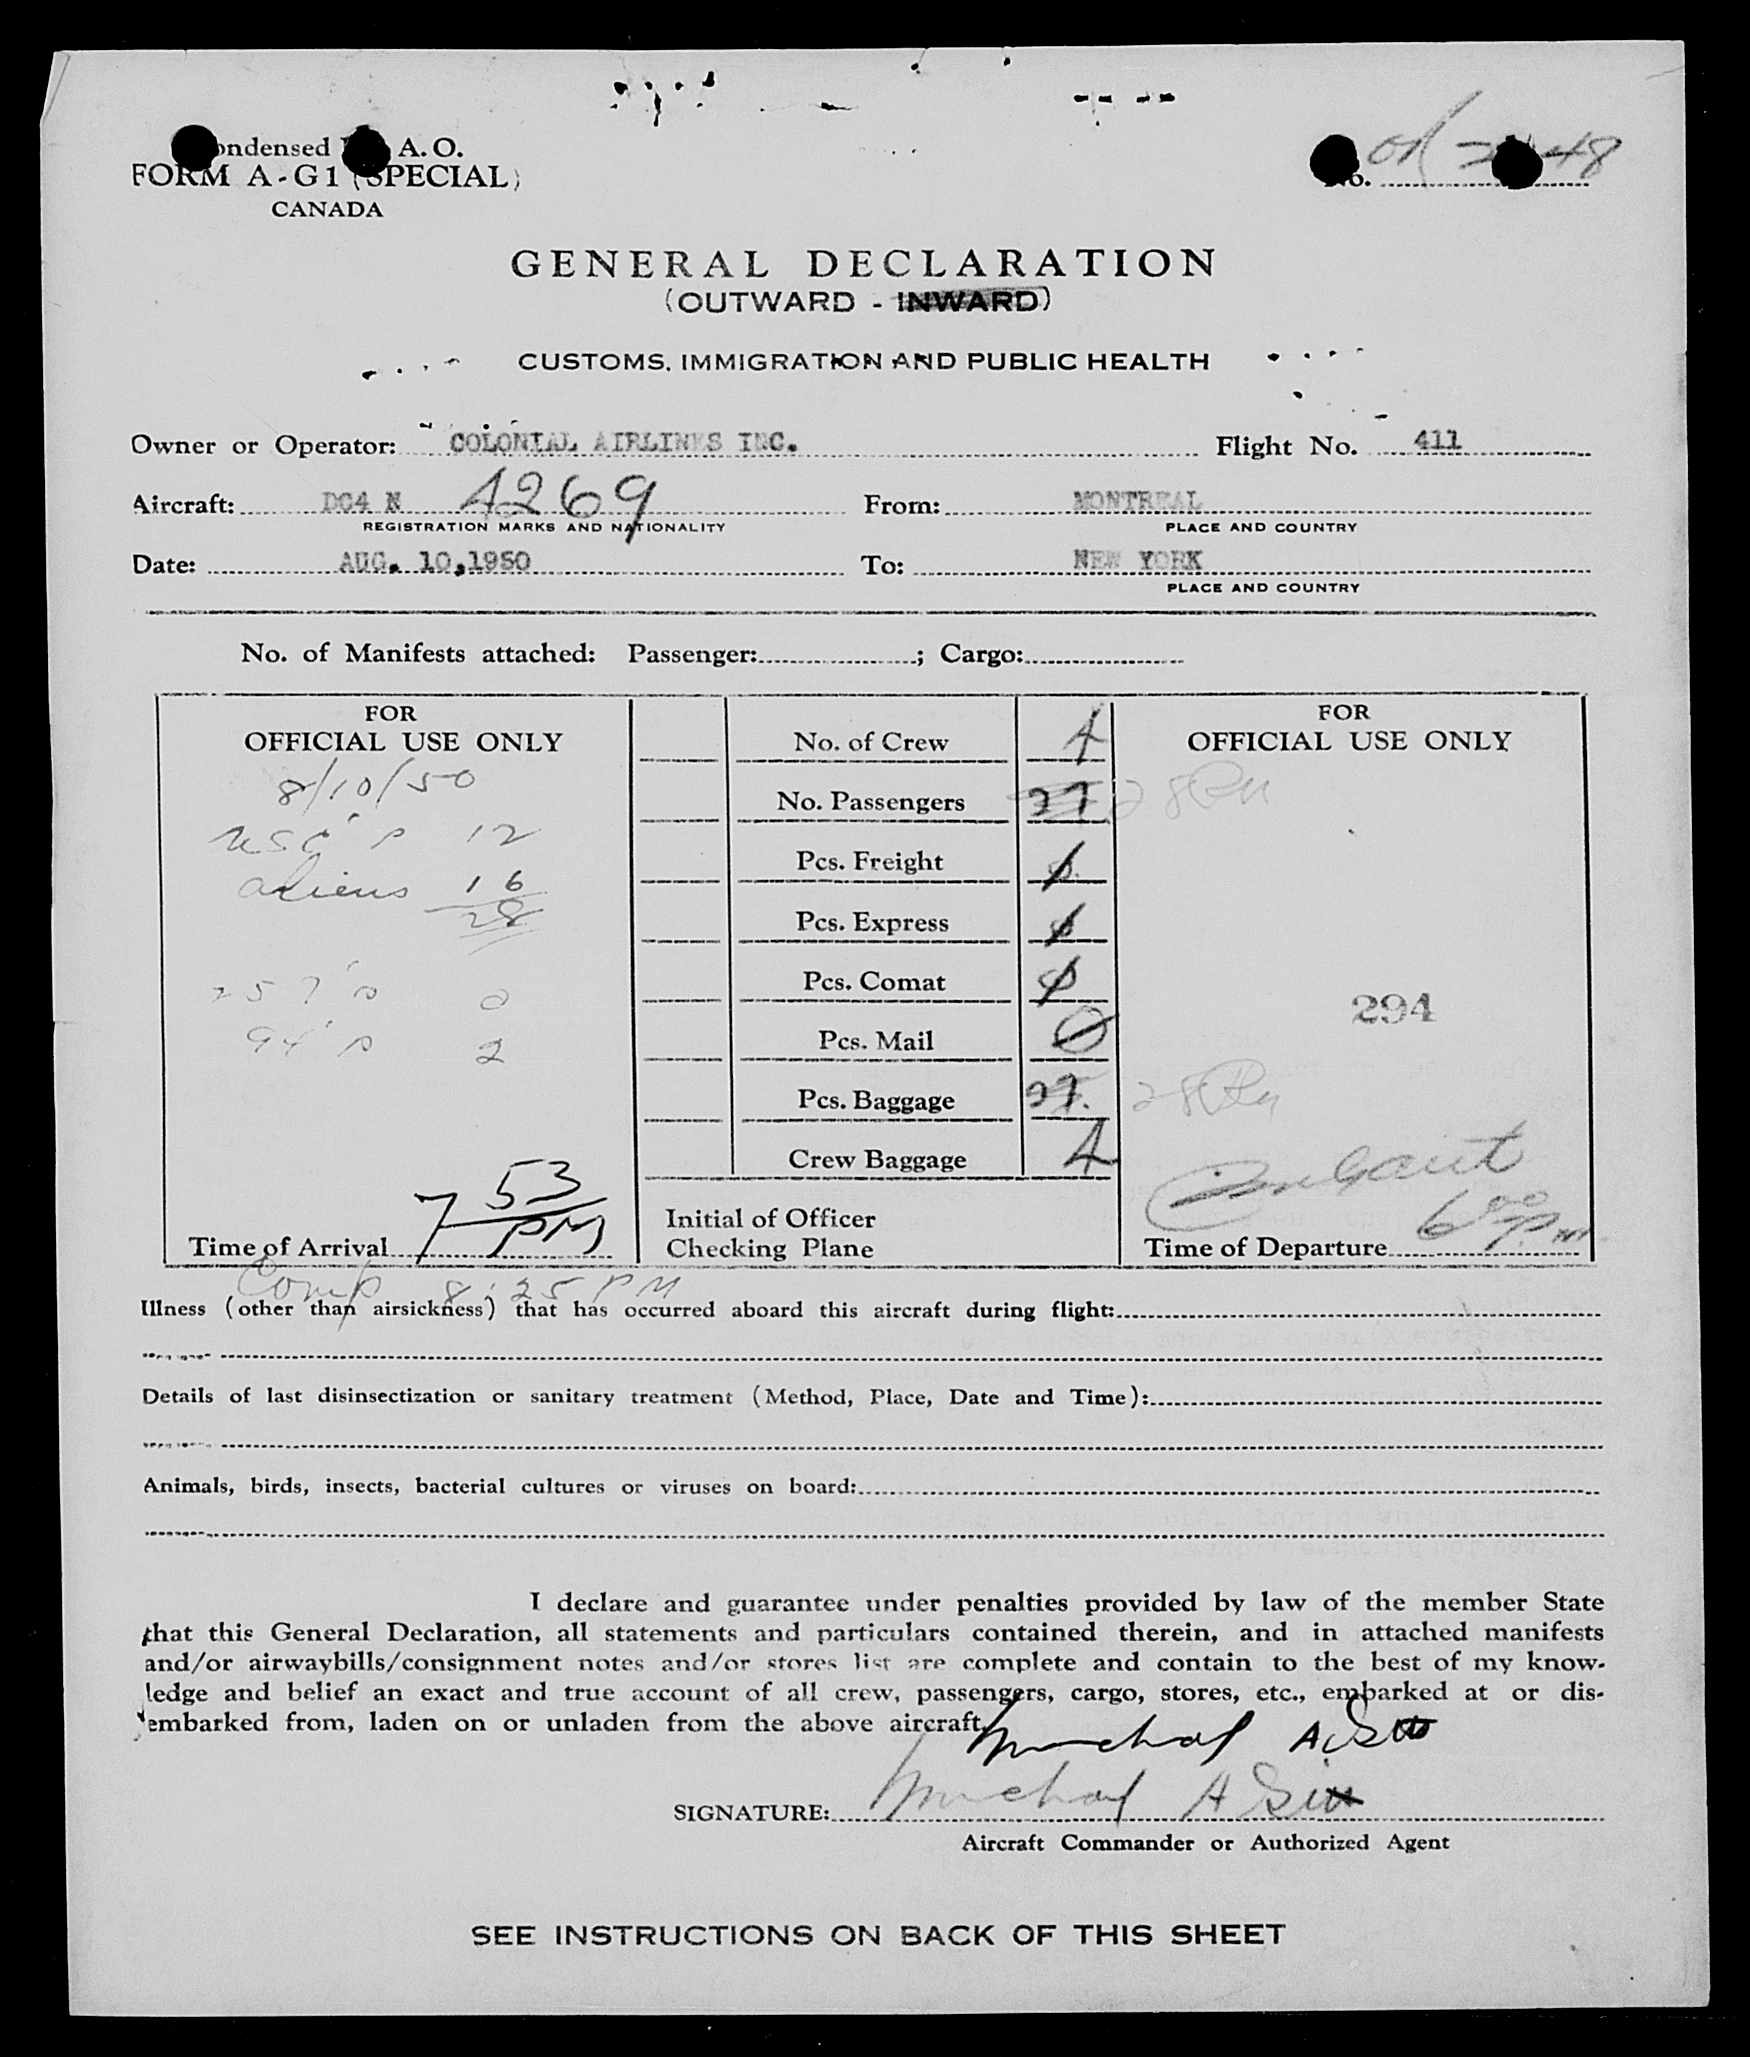 ondensed A. O.
FORM A-G1 (SPECIAL)
CANADA
No. 48
GENERAL DECLARATION
(OUTWARD - INWARD)
CUSTOMS, IMMIGRATION AND PUBLIC HEALTH
Owner or Operator: COLONIAL AIRLINES INC. Flight No. 411
Aircraft: DC4 N 4269 From: MONTREAL
REGISTRATION MARKS AND NATIONALITY PLACE AND COUNTRY
Date: AUG. 10,1950 To: NEW YORK
PLACE AND COUNTRY
No. of Manifests attached: Passenger: ; Cargo:
FOR
OFFICIAL USE ONLY
8/10/50
USC's 12
aliens 16
28
257's 0
94's 2
7 53 PM
Time of Arrival
No. of Crew 4
No. Passengers 27 28
Pcs. Freight 0
Pcs. Express 0
Pcs. Comat 0
Pcs. Mail 0
Pcs. Baggage 27. 28
Crew Baggage 4
Initial of Officer
Checking Plane
FOR
OFFICIAL USE ONLY
294
6 00 P.m.
Time of Departure
Comp 8:25 PM
Illness (other than airsickness) that has occurred aboard this aircraft during flight:
Details of last disinsectization or sanitary treatment (Method, Place, Date and Time):
Animals, birds, insects, bacterial cultures or viruses on board:
I declare and guarantee under penalties provided by law of the member State
that this General Declaration, all statements and particulars contained therein, and in attached manifests
and/or airwaybills/consignment notes and/or stores list are complete and contain to the best of my know-
ledge and belief an exact and true account of all crew, passengers, cargo, stores, etc., embarked at or dis-
embarked from, laden on or unladen from the above aircraft.
SIGNATURE: Michael A
Aircraft Commander or Authorized Agent
SEE INSTRUCTIONS ON BACK OF THIS SHEET